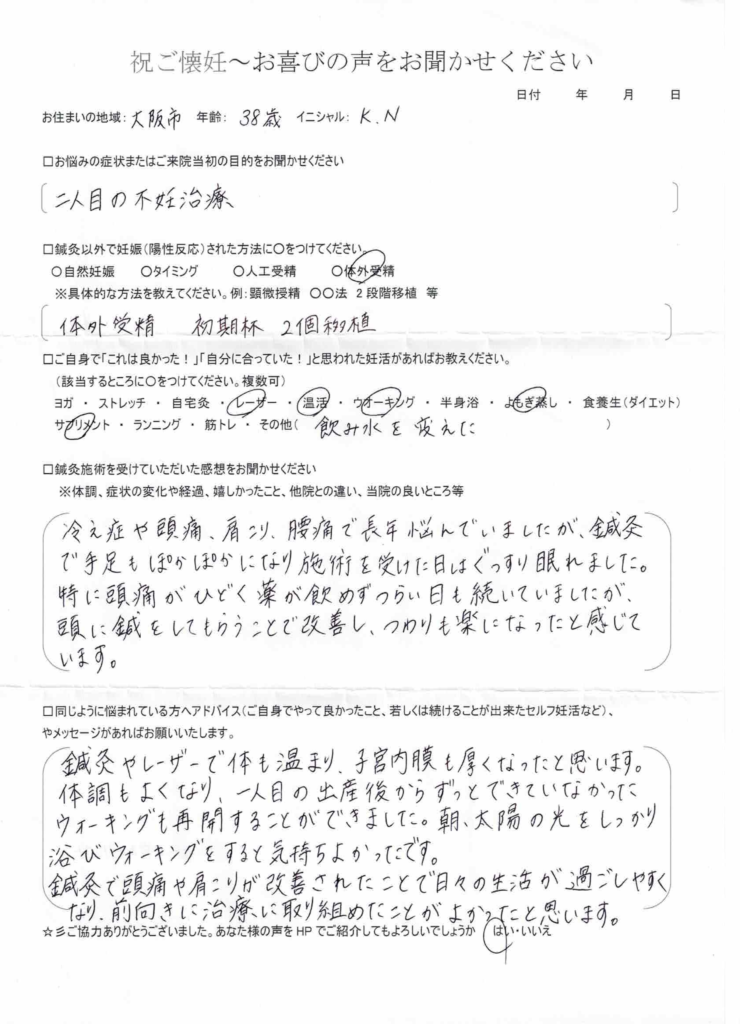 祝ご懐妊～お喜びの声をお聞かせください
日付　年　月　日
お住まいの地域：大阪市　年齢：38歳　イニシャル：K.N
□お悩みの症状またはご来院当初の目的をお聞かせください
二人目の不妊治療
□鍼灸以外で妊娠（陽性反応）された方法に○をつけてください。
○自然妊娠　○タイミング　○人工受精　○体外受精
※具体的な方法を教えてください。例：顕微授精　○○法　2段階移植　等
体外受精　初期杯　2個移植
□ご自身で「これは良かった！」「自分に合っていた！」と思われた妊活があればお教えください。
（該当するところに○をつけてください。複数可）
ヨガ ・ ストレッチ ・ 自宅灸 ・ レーザー ・ 温活 ・ ウオーキング ・ 半身浴 ・ よもぎ蒸し ・ 食養生（ダイエット）
サプリメント ・ ランニング ・ 筋トレ ・ その他（　飲み水を変えた　）
□鍼灸施術を受けていただいた感想をお聞かせください
※体調、症状の変化や経過、嬉しかったこと、他院との違い、当院の良いところ等
冷え症や頭痛、肩こり、腰痛で長年悩んでいましたが、鍼灸
で手足もぽかぽかになり施術を受けた日はぐっすり眠れました。
特に頭痛がひどく薬が飲めずつらい日も続いていましたが、
頭に鍼をしてもらうことで改善し、つわりも楽になったと感じて
います。
□同じように悩まれている方へアドバイス（ご自身でやって良かったこと、若しくは続けることが出来たセルフ妊活など）、
やメッセージがあればお願いいたします。
鍼灸やレーザーで体も温まり、子宮内膜も厚くなったと思います。
体調もよくなり、一人目の出産後からずっとできていなかった
ウォーキングも再開することができました。朝、太陽の光をしっかり
浴びウォーキングをすると気持ちよかったです。
鍼灸で頭痛や肩こりが改善されたことで日々の生活が過ごしやすく
なり、前向きに治療に取り組めたことがよかったと思います。
☆彡ご協力ありがとうございました。あなた様の声をHPでご紹介してもよろしいでしょうか　はい・いいえ